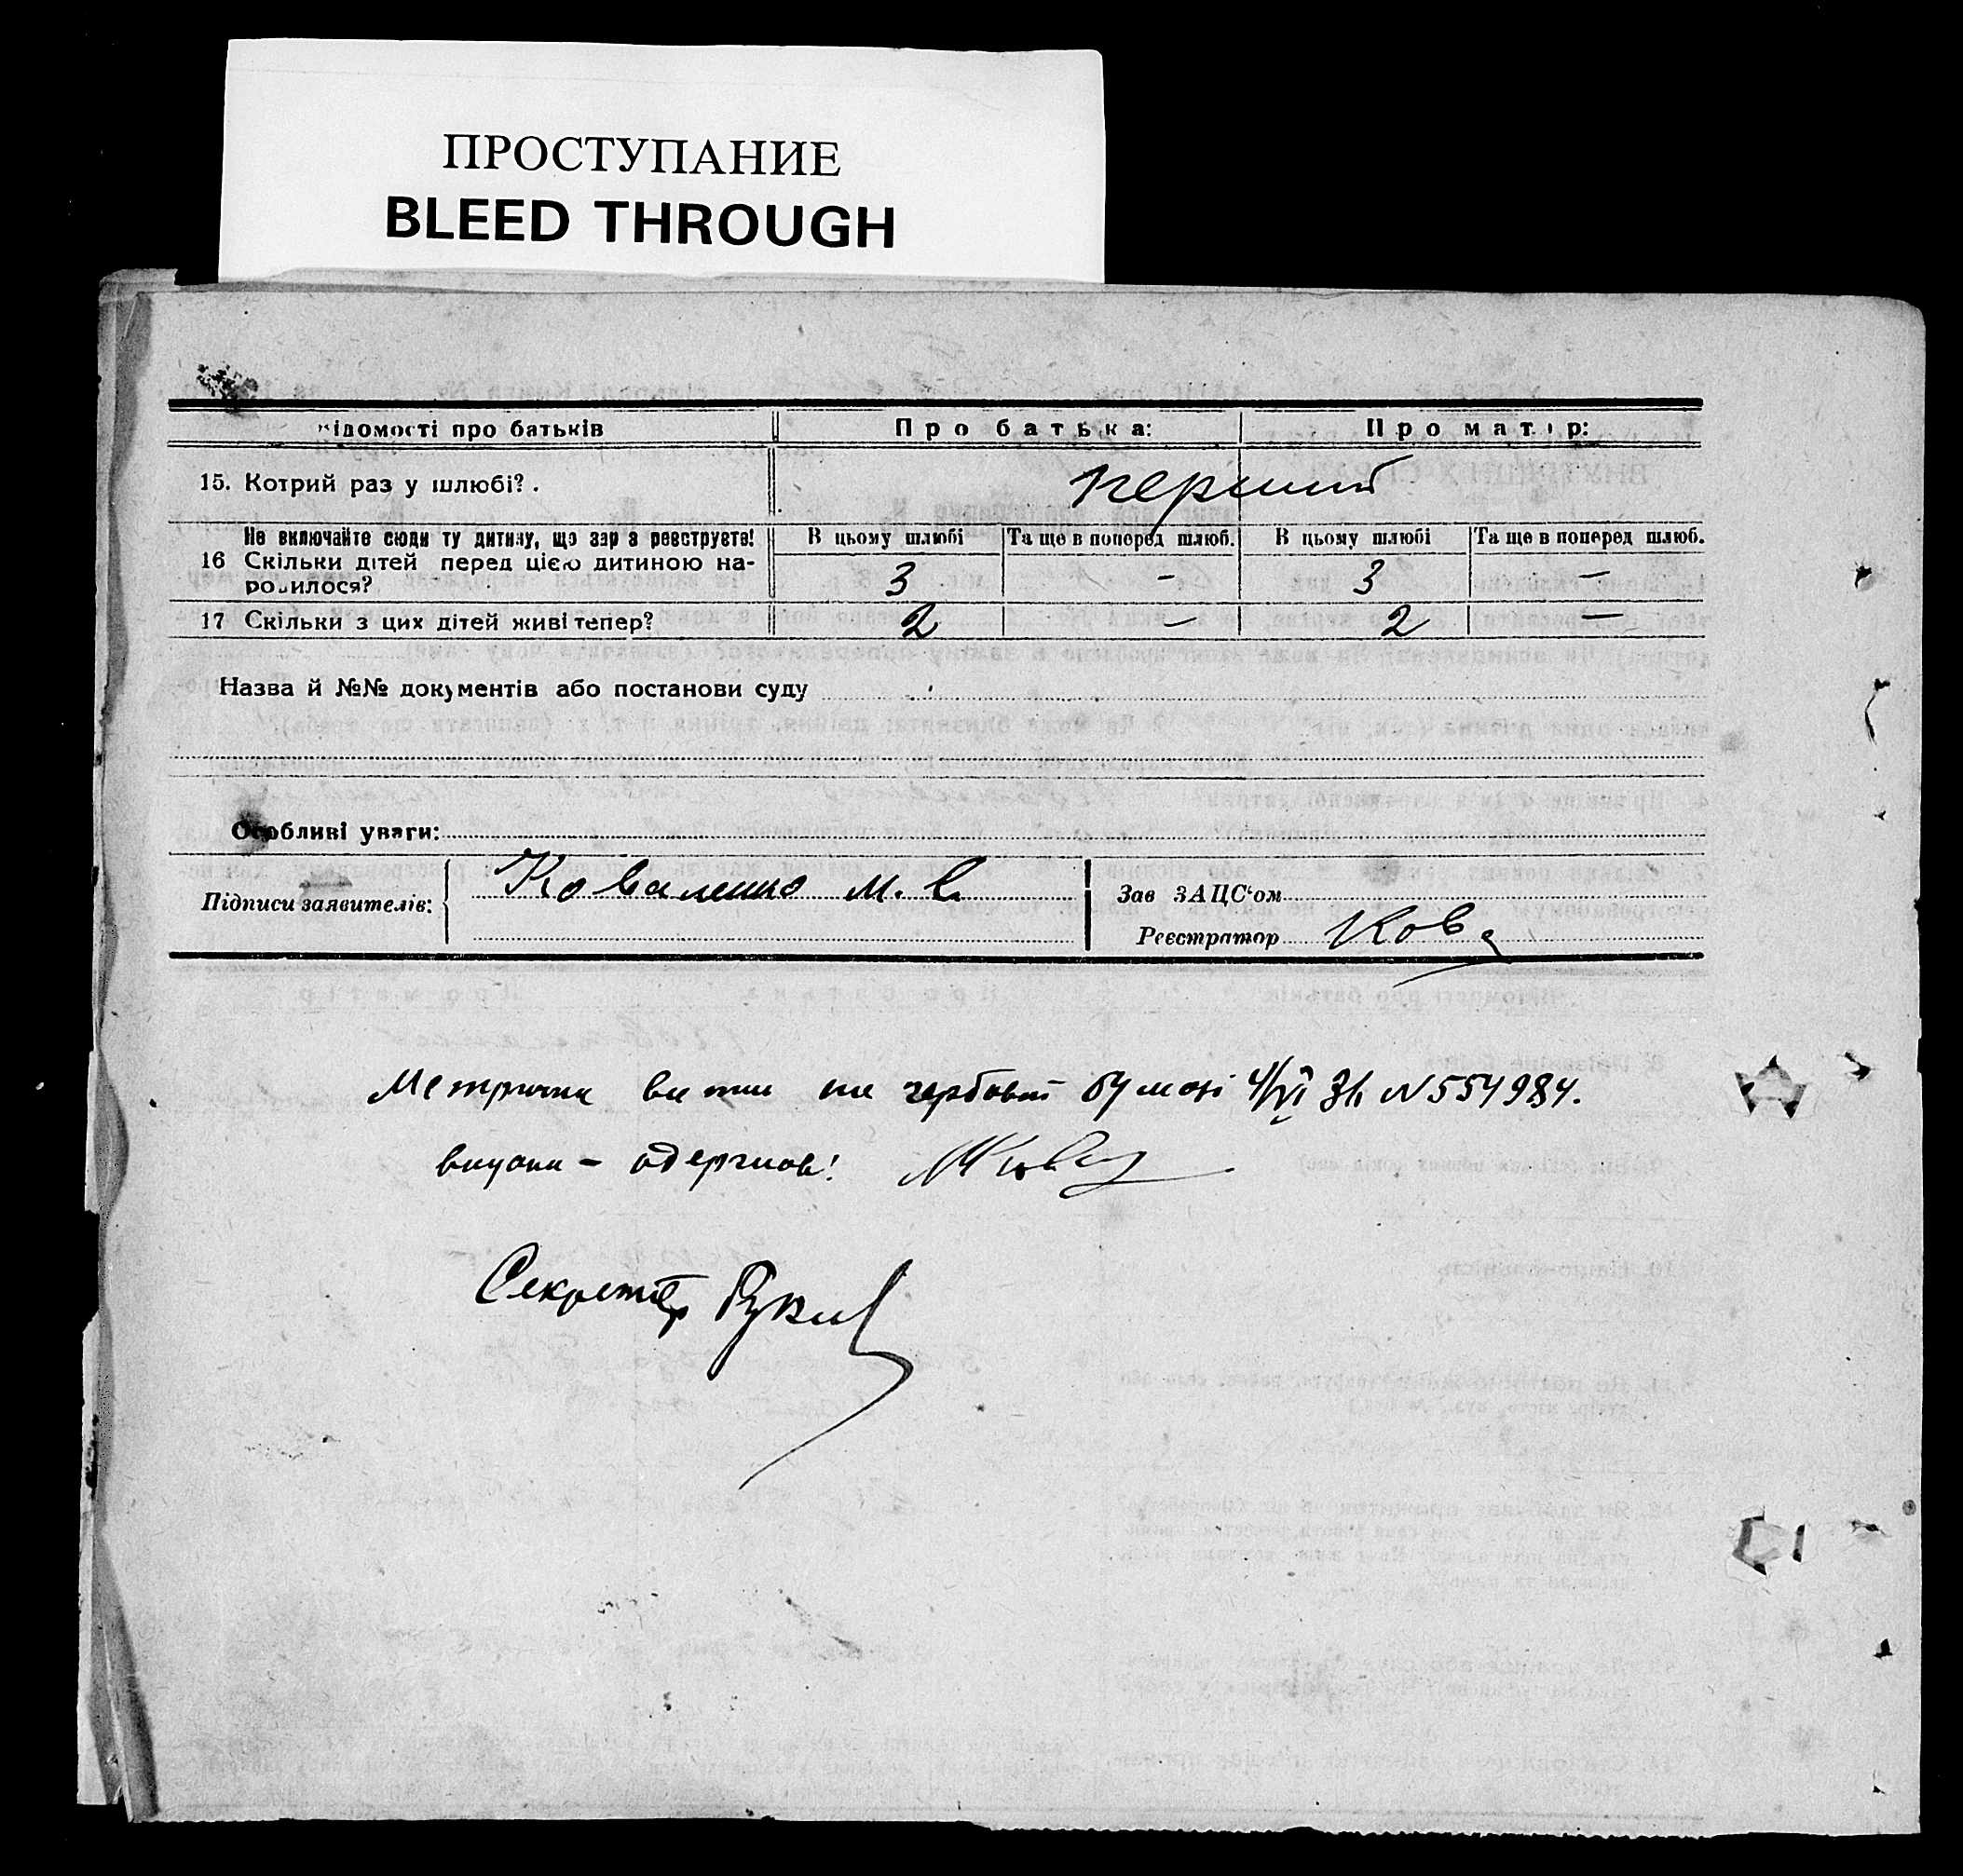 ПРОСТУПАНИЕ
BLEED THROUGH
Відомості про батьків Про батька: Про матір:
15. Котрий раз у шлюбі? . перший
Не включайте сюди ту дитину, що зараз реєструєте! В цьому шлюбі Та ще в поперед шлюб. В цьому шлюбі Та ще в поперед шлюб.
16 Скільки дітей перед цією дитиною на-
родилося? 3 – 3 –
17 Скільки з цих дітей живі тепер? 2 – 2 –
Назва й №№ документів або постанови суду
Особливі уваги:
Підписи заявителів: Коваленко М. Зав ЗАЦС'ом
Реєстратор Ков
Метрична на гербовій бумазі 4/VI 31 N 554984.
одержав!
Секретар